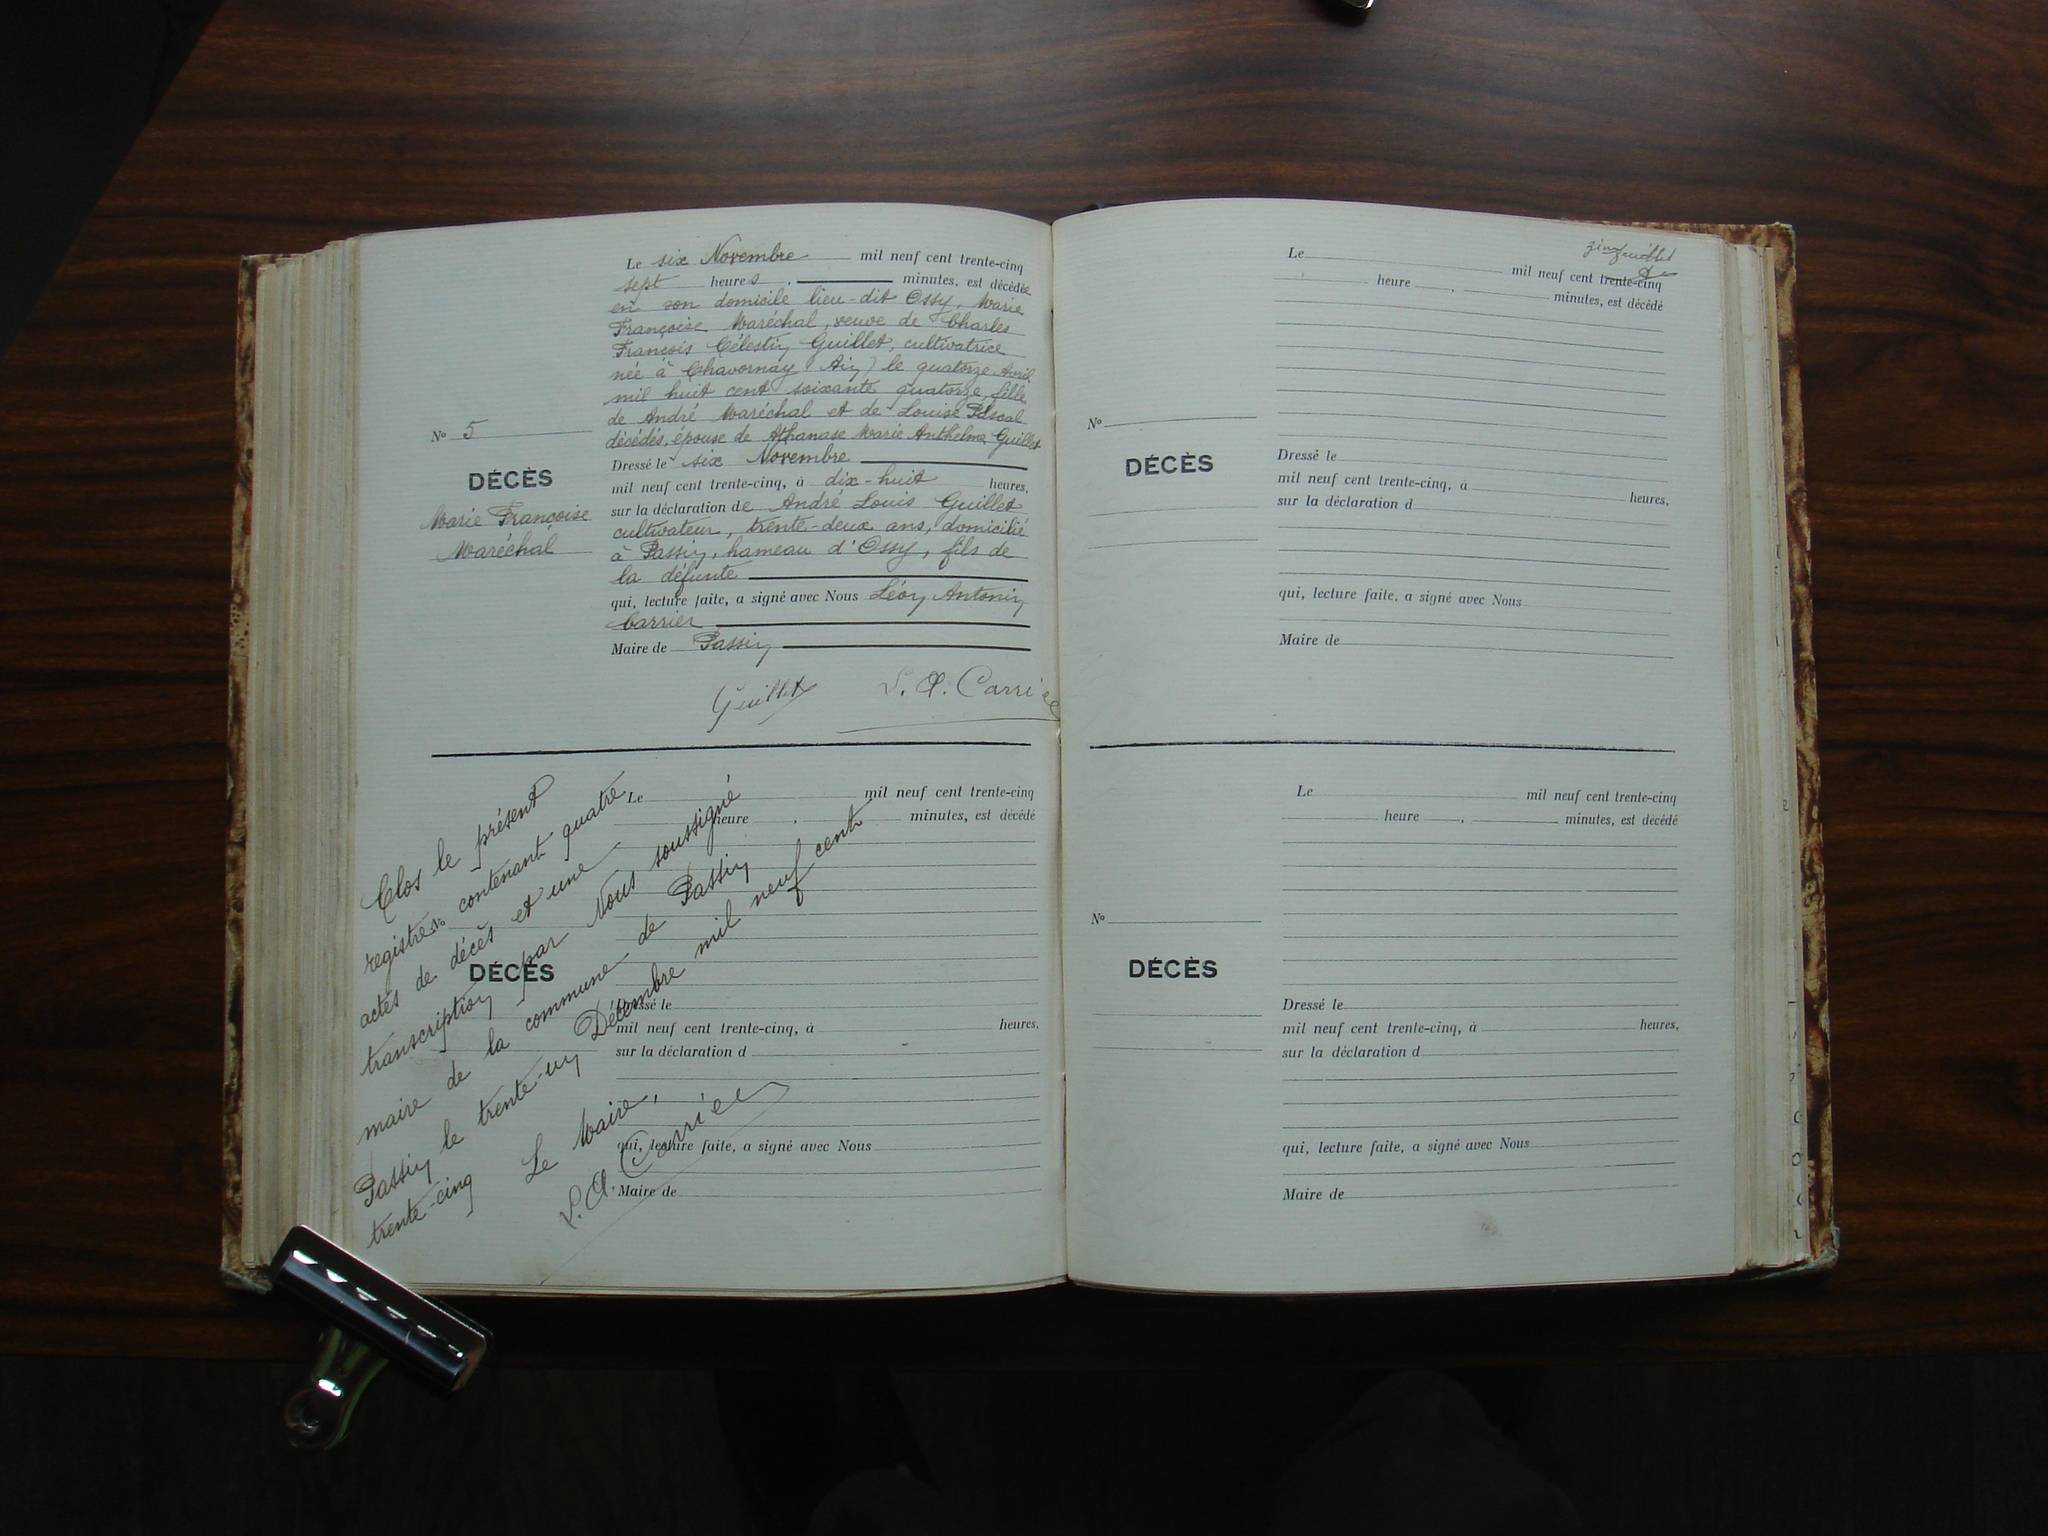 Le six Novembre mil neuf cent trente-cinq
sept heures, minutes, est décédée
en son domicile lieu-dit Ossy, Marie
Françoise Maréchal, veuve de Charles
François Célestin Guillet, cultivatrice
née à Chavornay (Ain) le quatorze Avril
mil huit cent soixante quatorze, fille
de André Maréchal et de Louise Pascal
décédés, épouse de Athanase Marie Anthelme Guillet
Nº 5
DÉCÈS
Marie Françoise
Maréchal
Dressé le six Novembre
mil neuf cent trente-cinq, à dix-huit heures,
sur la déclaration de André Louis Guillet
cultivateur, trente-deux ans, domicilié
à Passin, hameau d'Ossy, fils de
la défunte
qui, lecture faite, a signé avec Nous Léon Antonin
Carrier
Maire de Passin
Guillet L. A. Carrier
Clos le présent
registre contenant quatre
actes de décès et une
transcription par Nous soussigné
maire de la commune de Passin
Passin le trente-un Décembre mil neuf cent
trente-cinq
Le Maire,
L. A. Carrier
Le mil neuf cent trente-cinq
heure , minutes, est décédé
Nº
DÉCÈS
Dressé le
mil neuf cent trente-cinq, à heures,
sur la déclaration d
qui, lecture faite, a signé avec Nous
Maire de
Le mil neuf cent trente-cinq
heure , minutes, est décédé
Nº
DÉCÈS
Dressé le
mil neuf cent trente-cinq, à heures,
sur la déclaration d
qui, lecture faite, a signé avec Nous
Maire de
Le mil neuf cent trente-cinq
heure , minutes, est décédé
Nº
DÉCÈS
Dressé le
mil neuf cent trente-cinq, à heures,
sur la déclaration d
qui, lecture faite, a signé avec Nous
Maire de